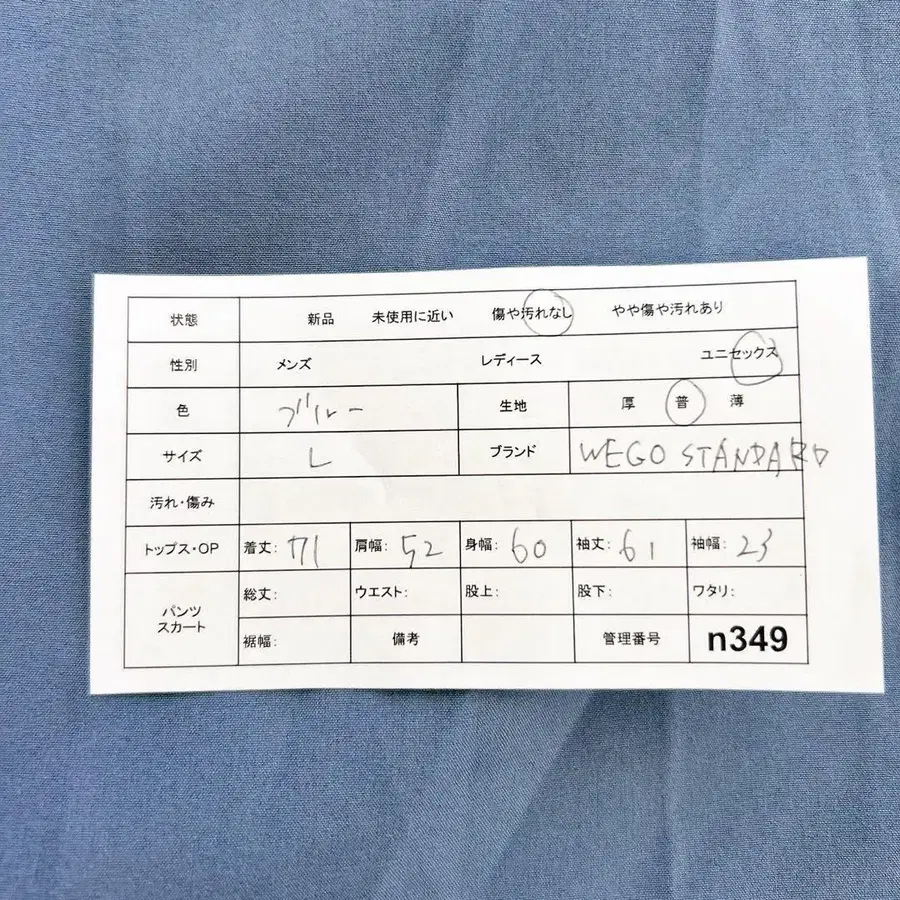 状態 新品 未使用に近い 傷や汚れなし やや傷や汚れあり
性別 メンズ レディース ユニセックス
色 ブルー 生地 厚 普 薄
サイズ L ブランド WEGO STANDARD
汚れ・傷み
トップス・OP 着丈: 71 肩幅: 52 身幅: 60 袖丈: 61 袖幅: 23
パンツ スカート 総丈: ウエスト: 股上: 股下: ワタリ:
裾幅: 備考 管理番号 n349